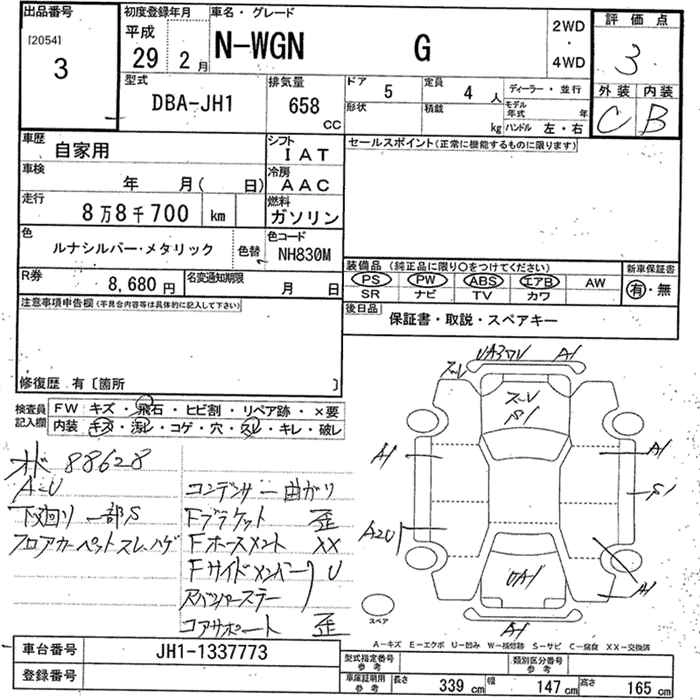 出品番号
[2054]
3
初度登録年月
平成
29 2 月
車名・グレード
N-WGN G
2WD
・
4WD
評価点
3
外装 内装
C B
型式
DBA-JH1
排気量
658
CC
ドア 5
定員 4 人
ディーラー・並行
形状
積載 kg
モデル年式 年
ハンドル 左・右
車歴
自家用
シフト
IAT
セールスポイント(正常に機能するものに限ります)
車検
年 月( 日)
冷房
AAC
走行
8万8千700 km
燃料
ガソリン
色
ルナシルバー・メタリック
色替
色コード
NH830M
R券
8,680円
名変通知期限
月 日
装備品(純正品に限り○をつけてください)
PS PW ABS エアB AW
SR ナビ TV カワ
新車保証書
有・無
注意事項申告欄(不具合内容等は具体的に記入して下さい)
後日品
保証書・取説・スペアキー
修復歴 有〔箇所 〕
検査員
記入欄
FW キズ・飛石・ヒビ割・リペア跡・×要
内装 キズ・汚レ・コゲ・穴・スレ・キレ・破レ
オド 88628
A-U
下廻り一部S
フロアカーペットスレ、ハゲ
コンデンサー曲がり
Fブラケット 歪
Fホースメント XX
Fサイドメンバー U
コアサポート 歪
A1
A1
A1
A2U
S1
A1
UA1
A1
スペア
A-キズ E-エクボ U-凹み W-補修跡 S-サビ C-腐食 XX-交換済
車台番号
JH1-1337773
登録番号
型式指定番号
参考
類別区分番号
参考
車庫証明用
参考
長さ 339 cm
幅 147 cm
高さ 165 cm